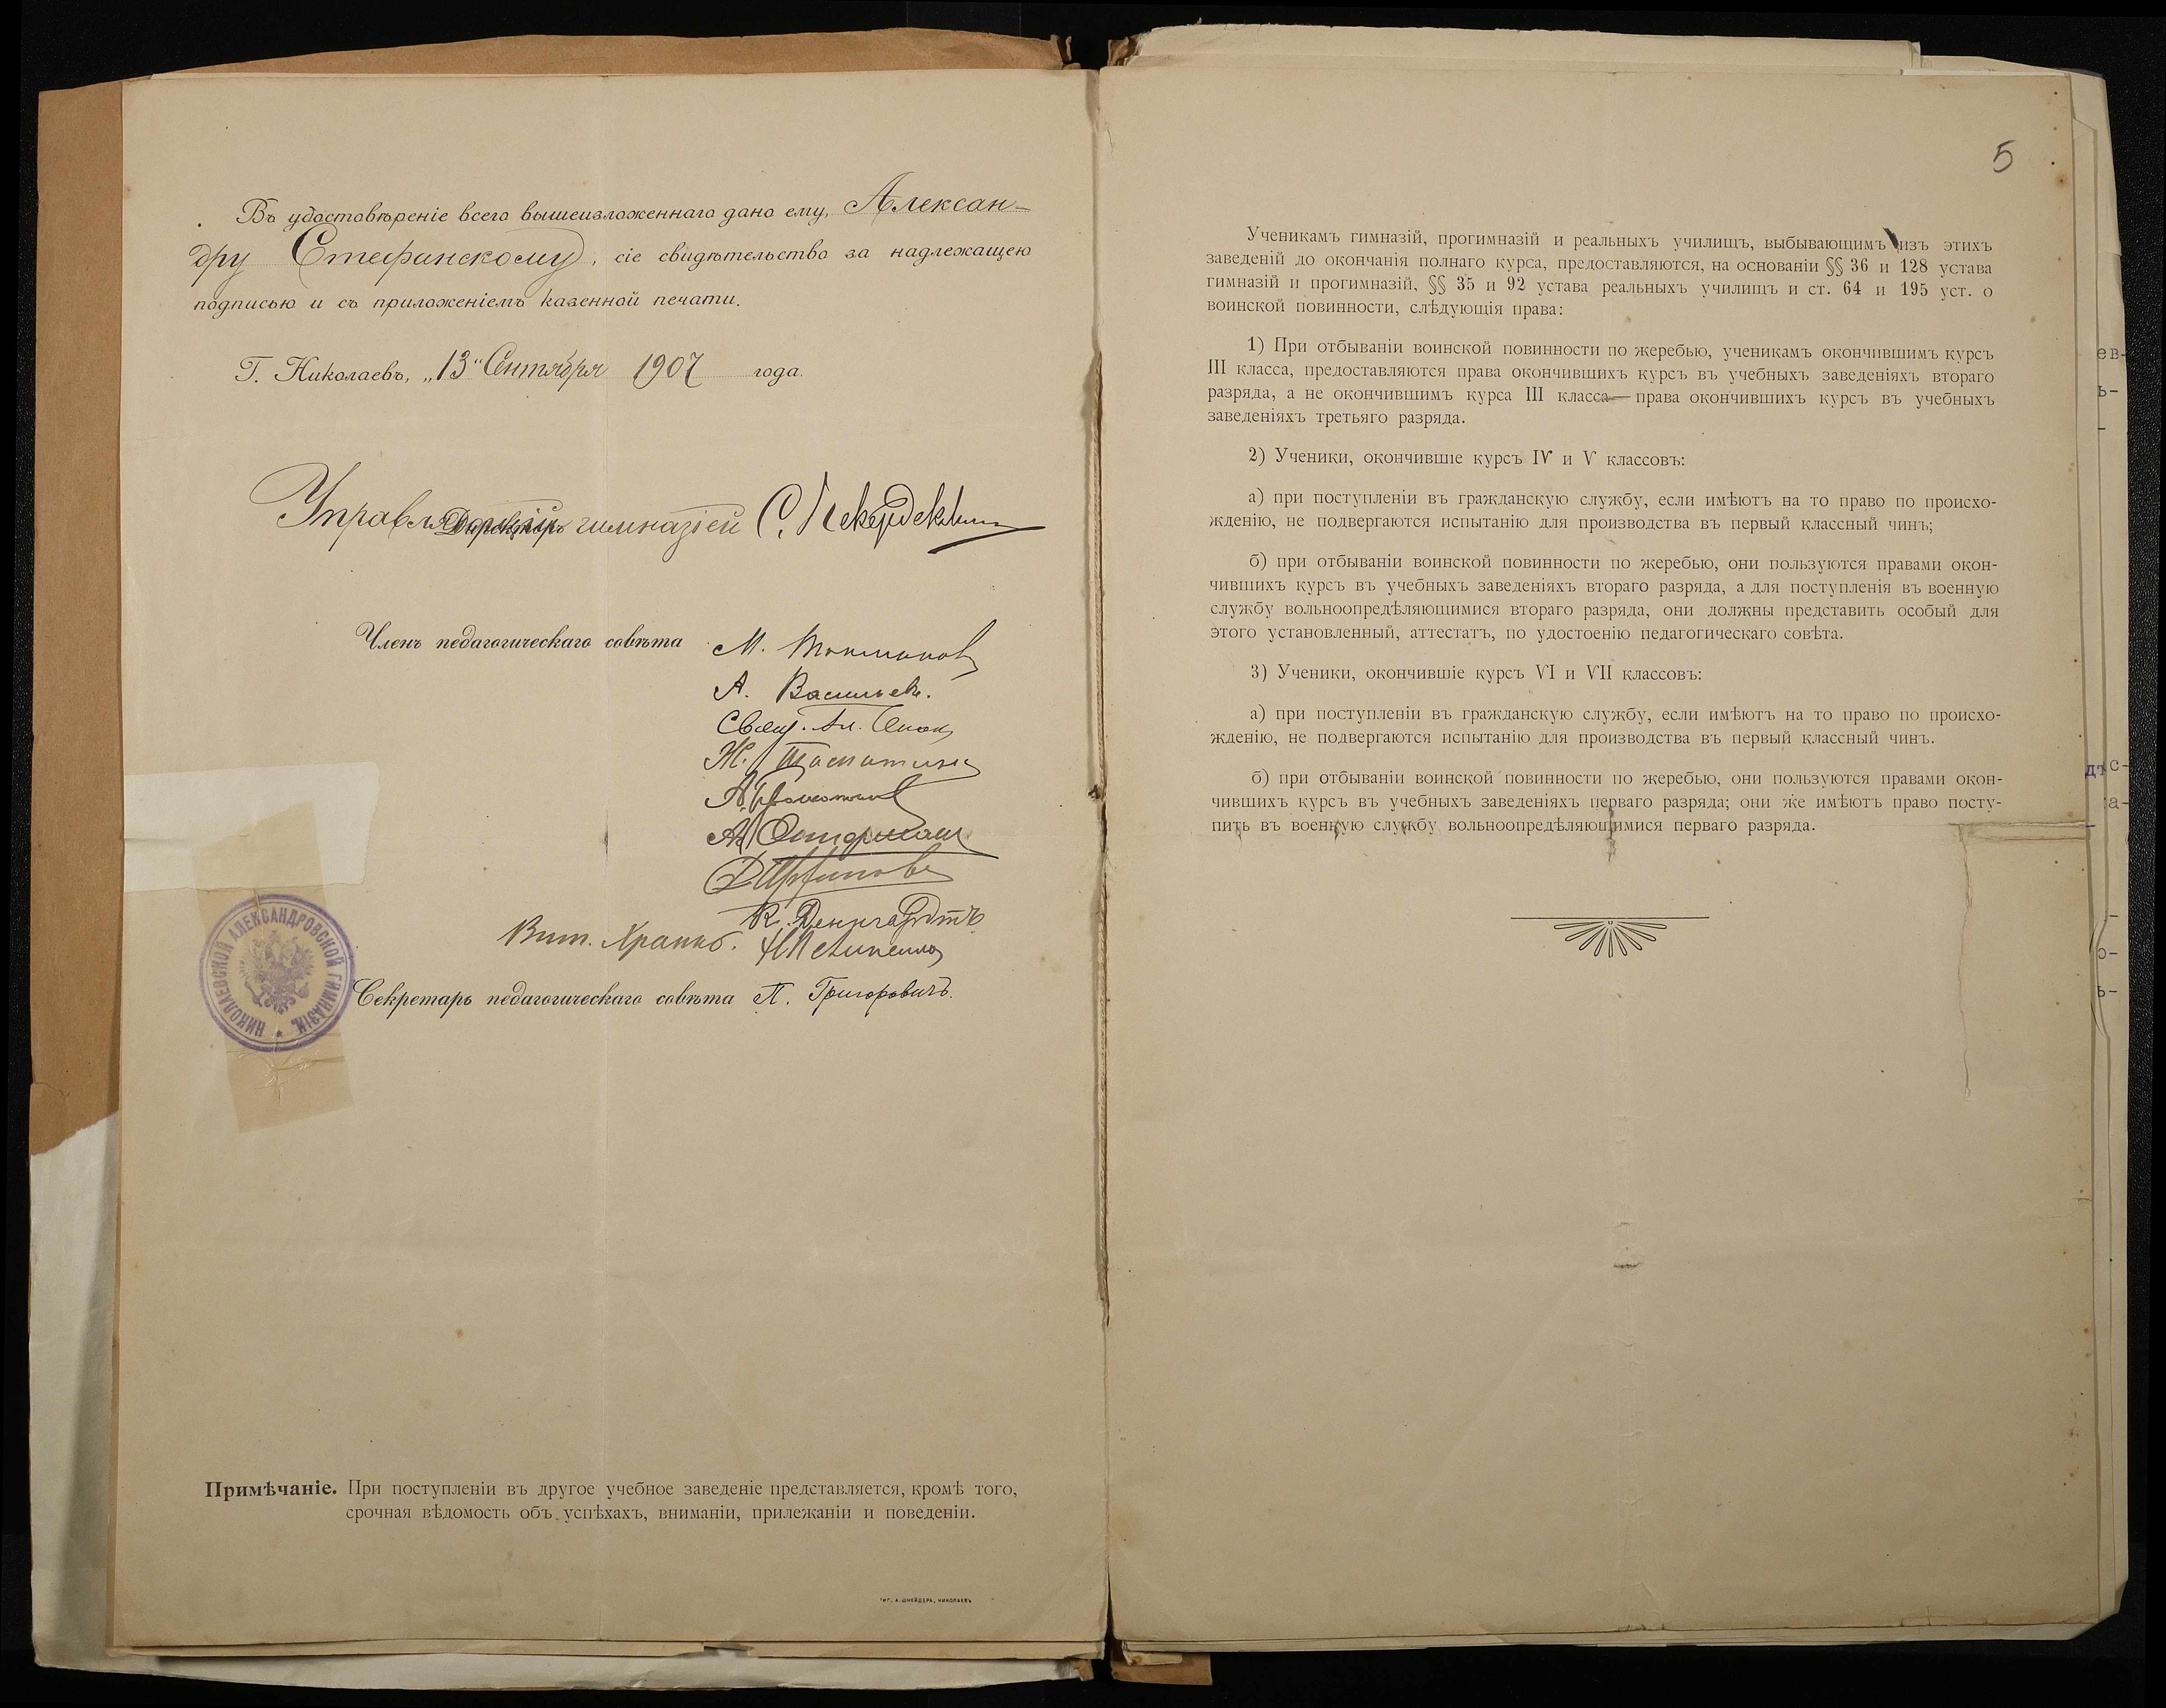 Въ удостовѣреніе всего вышеизложеннаго дано ему, Алексан-
дру Стефанскому, сіе свидѣтельство за надлежащею
подписью и съ приложеніемъ казенной печати.
Г. Николаевъ, „13" Сентября 1907 года.
Управляющій Директоръ гимназіей С.
Членъ педагогическаго совѣта М.
А. Васильевъ.
Свящ. Ал.
К. Денигардтъ
Секретарь педагогическаго совѣта П. Григоровичъ.
НИКОЛАЕВСКОЙ АЛЕКСАНДРОВСКОЙ ГИМНАЗІИ.
Примѣчаніе. При поступленіи въ другое учебное заведеніе представляется, кромѣ того,
срочная вѣдомость объ успѣхахъ, вниманіи, прилежаніи и поведеніи.
ТИП. А. ШНЕЙДЕРА, НИКОЛАЕВЪ
5
Ученикамъ гимназій, прогимназій и реальныхъ училищъ, выбывающимъ изъ этихъ
заведеній до окончанія полнаго курса, предоставляются, на основаніи §§ 36 и 128 устава
гимназій и прогимназій, §§ 35 и 92 устава реальныхъ училищъ и ст. 64 и 195 уст. о
воинской повинности, слѣдующія права:
1) При отбываніи воинской повинности по жеребью, ученикамъ окончившимъ курсъ
III класса, предоставляются права окончившихъ курсъ въ учебныхъ заведеніяхъ втораго
разряда, а не окончившимъ курса III класса—права окончившихъ курсъ въ учебныхъ
заведеніяхъ третьяго разряда.
2) Ученики, окончившіе курсъ IV и V классовъ:
а) при поступленіи въ гражданскую службу, если имѣютъ на то право по происхо-
жденію, не подвергаются испытанію для производства въ первый классный чинъ;
б) при отбываніи воинской повинности по жеребью, они пользуются правами окон-
чившихъ курсъ въ учебныхъ заведеніяхъ втораго разряда, а для поступленія въ военную
службу вольноопредѣляющимися втораго разряда, они должны представить особый для
этого установленный, аттестатъ, по удостоенію педагогическаго совѣта.
3) Ученики, окончившіе курсъ VI и VII классовъ:
а) при поступленіи въ гражданскую службу, если имѣютъ на то право по происхо-
жденію, не подвергаются испытанію для производства въ первый классный чинъ.
б) при отбываніи воинской повинности по жеребью, они пользуются правами окон-
чившихъ курсъ въ учебныхъ заведеніяхъ перваго разряда; они же имѣютъ право посту-
пить въ военную службу вольноопредѣляющимися перваго разряда.